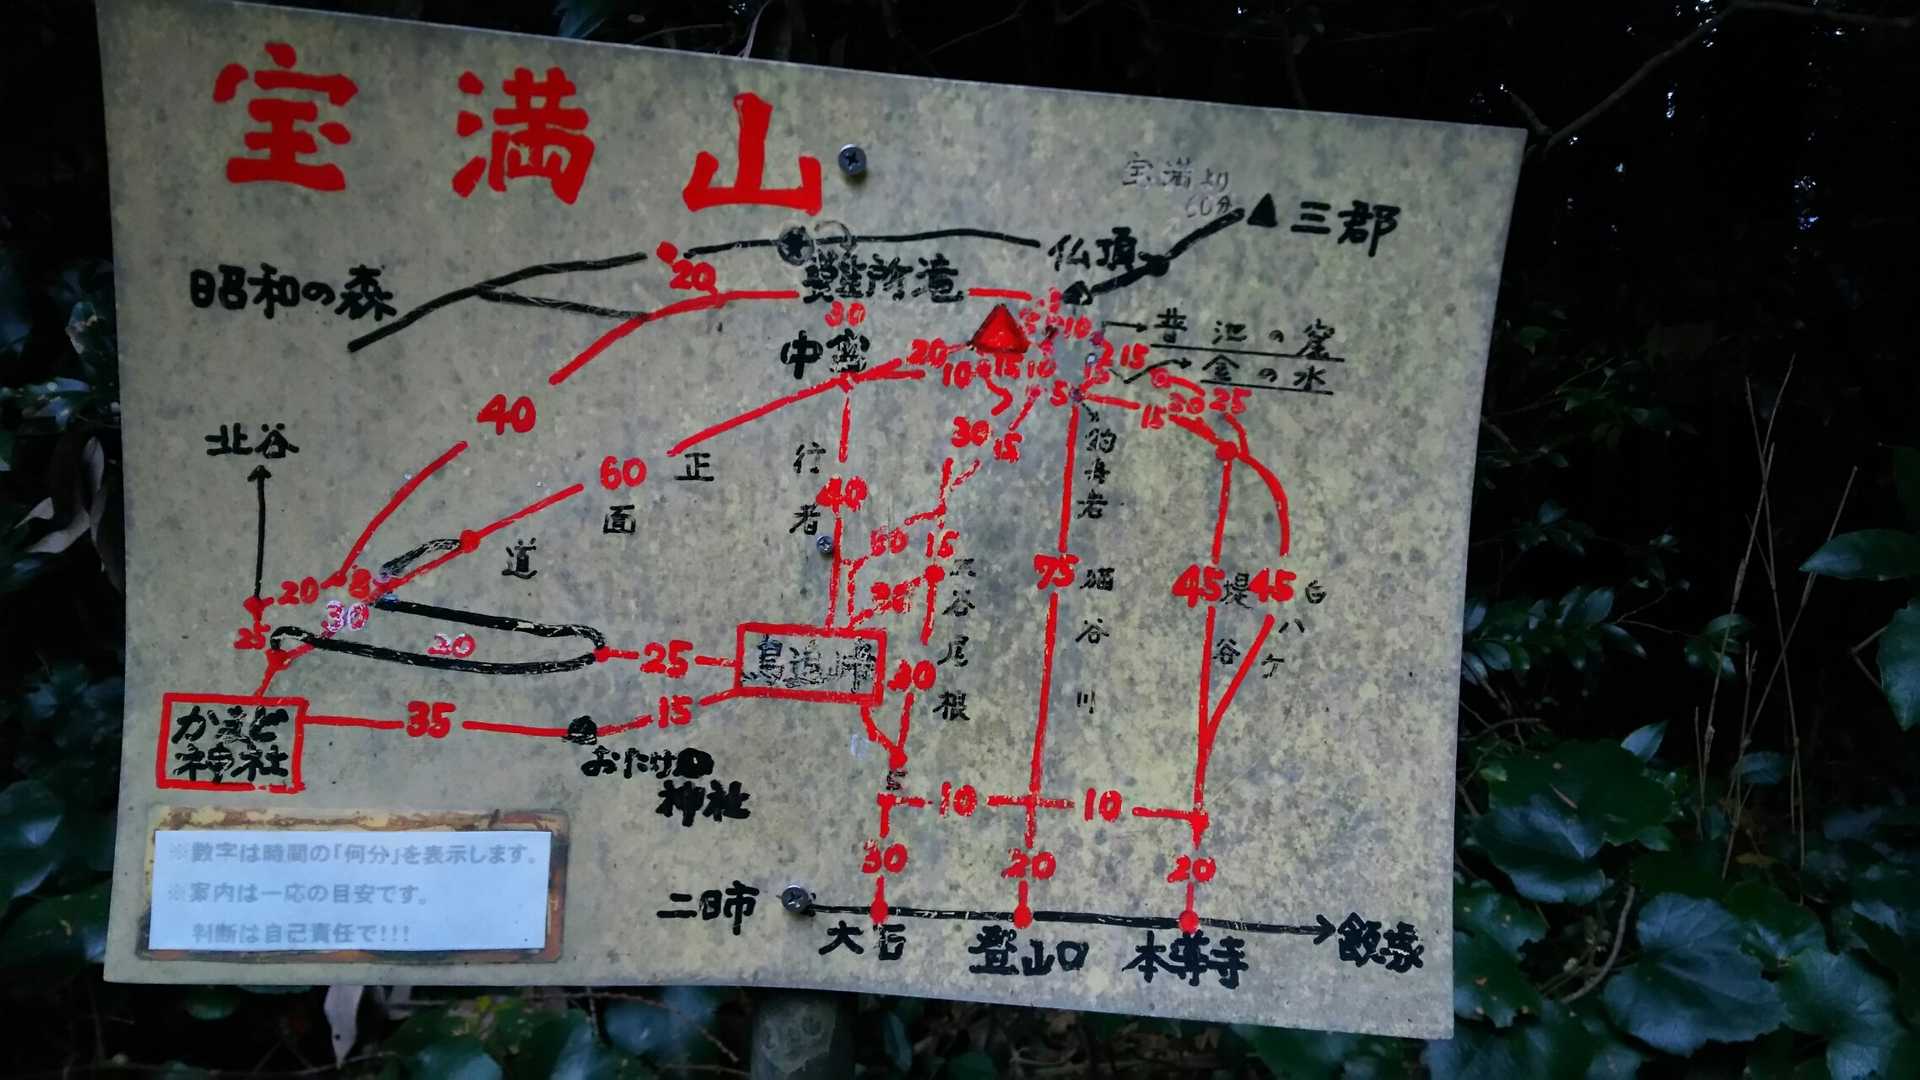 宝満山
宝満より
60分
三郡
仏頂
昭和の森
20
難所滝
30
中宮
20
10
15
10
10
普池の窟
15
金の水
15
5
15
30
25
40
北谷
60
正面道
行者
40
30
15
釣舟岩
50
15
谷尾根
75
谷川
45
堤谷
45
20
8
30
25
20
25
鳥追峠
15
かまど
神社
35
おたけの
神社
5
10
10
30
20
20
二日市
大石
登山口
本導寺
飯塚
※数字は時間の「何分」を表示します。
※案内は一応の目安です。
判断は自己責任で!!!